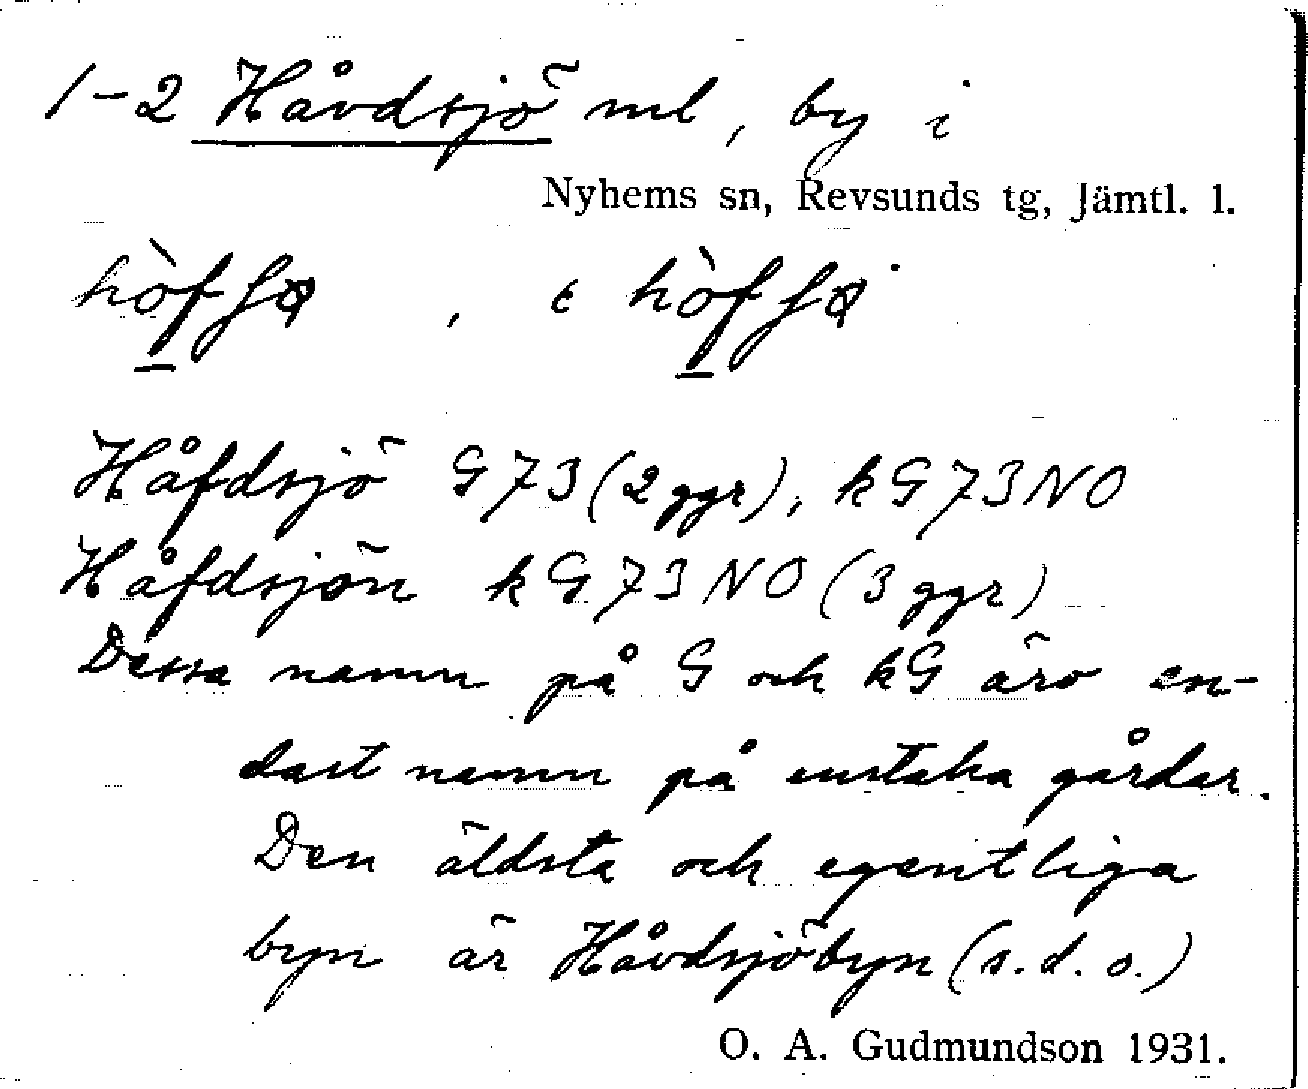 1-2 Håvdsjö ml, by i
Nyhems sn, Revsunds tg, Jämtl. l.
Håfdsjö G73 (2 ggr), kG73NO
Håfdsjön kG73NO (3 ggr)
Dessa namn på G och kG äro en-
dast namn på enstaka gårdar.
Den äldsta och egentliga
byn är Håvdsjöbyn (s. d. o.)
O. A. Gudmundson 1931.